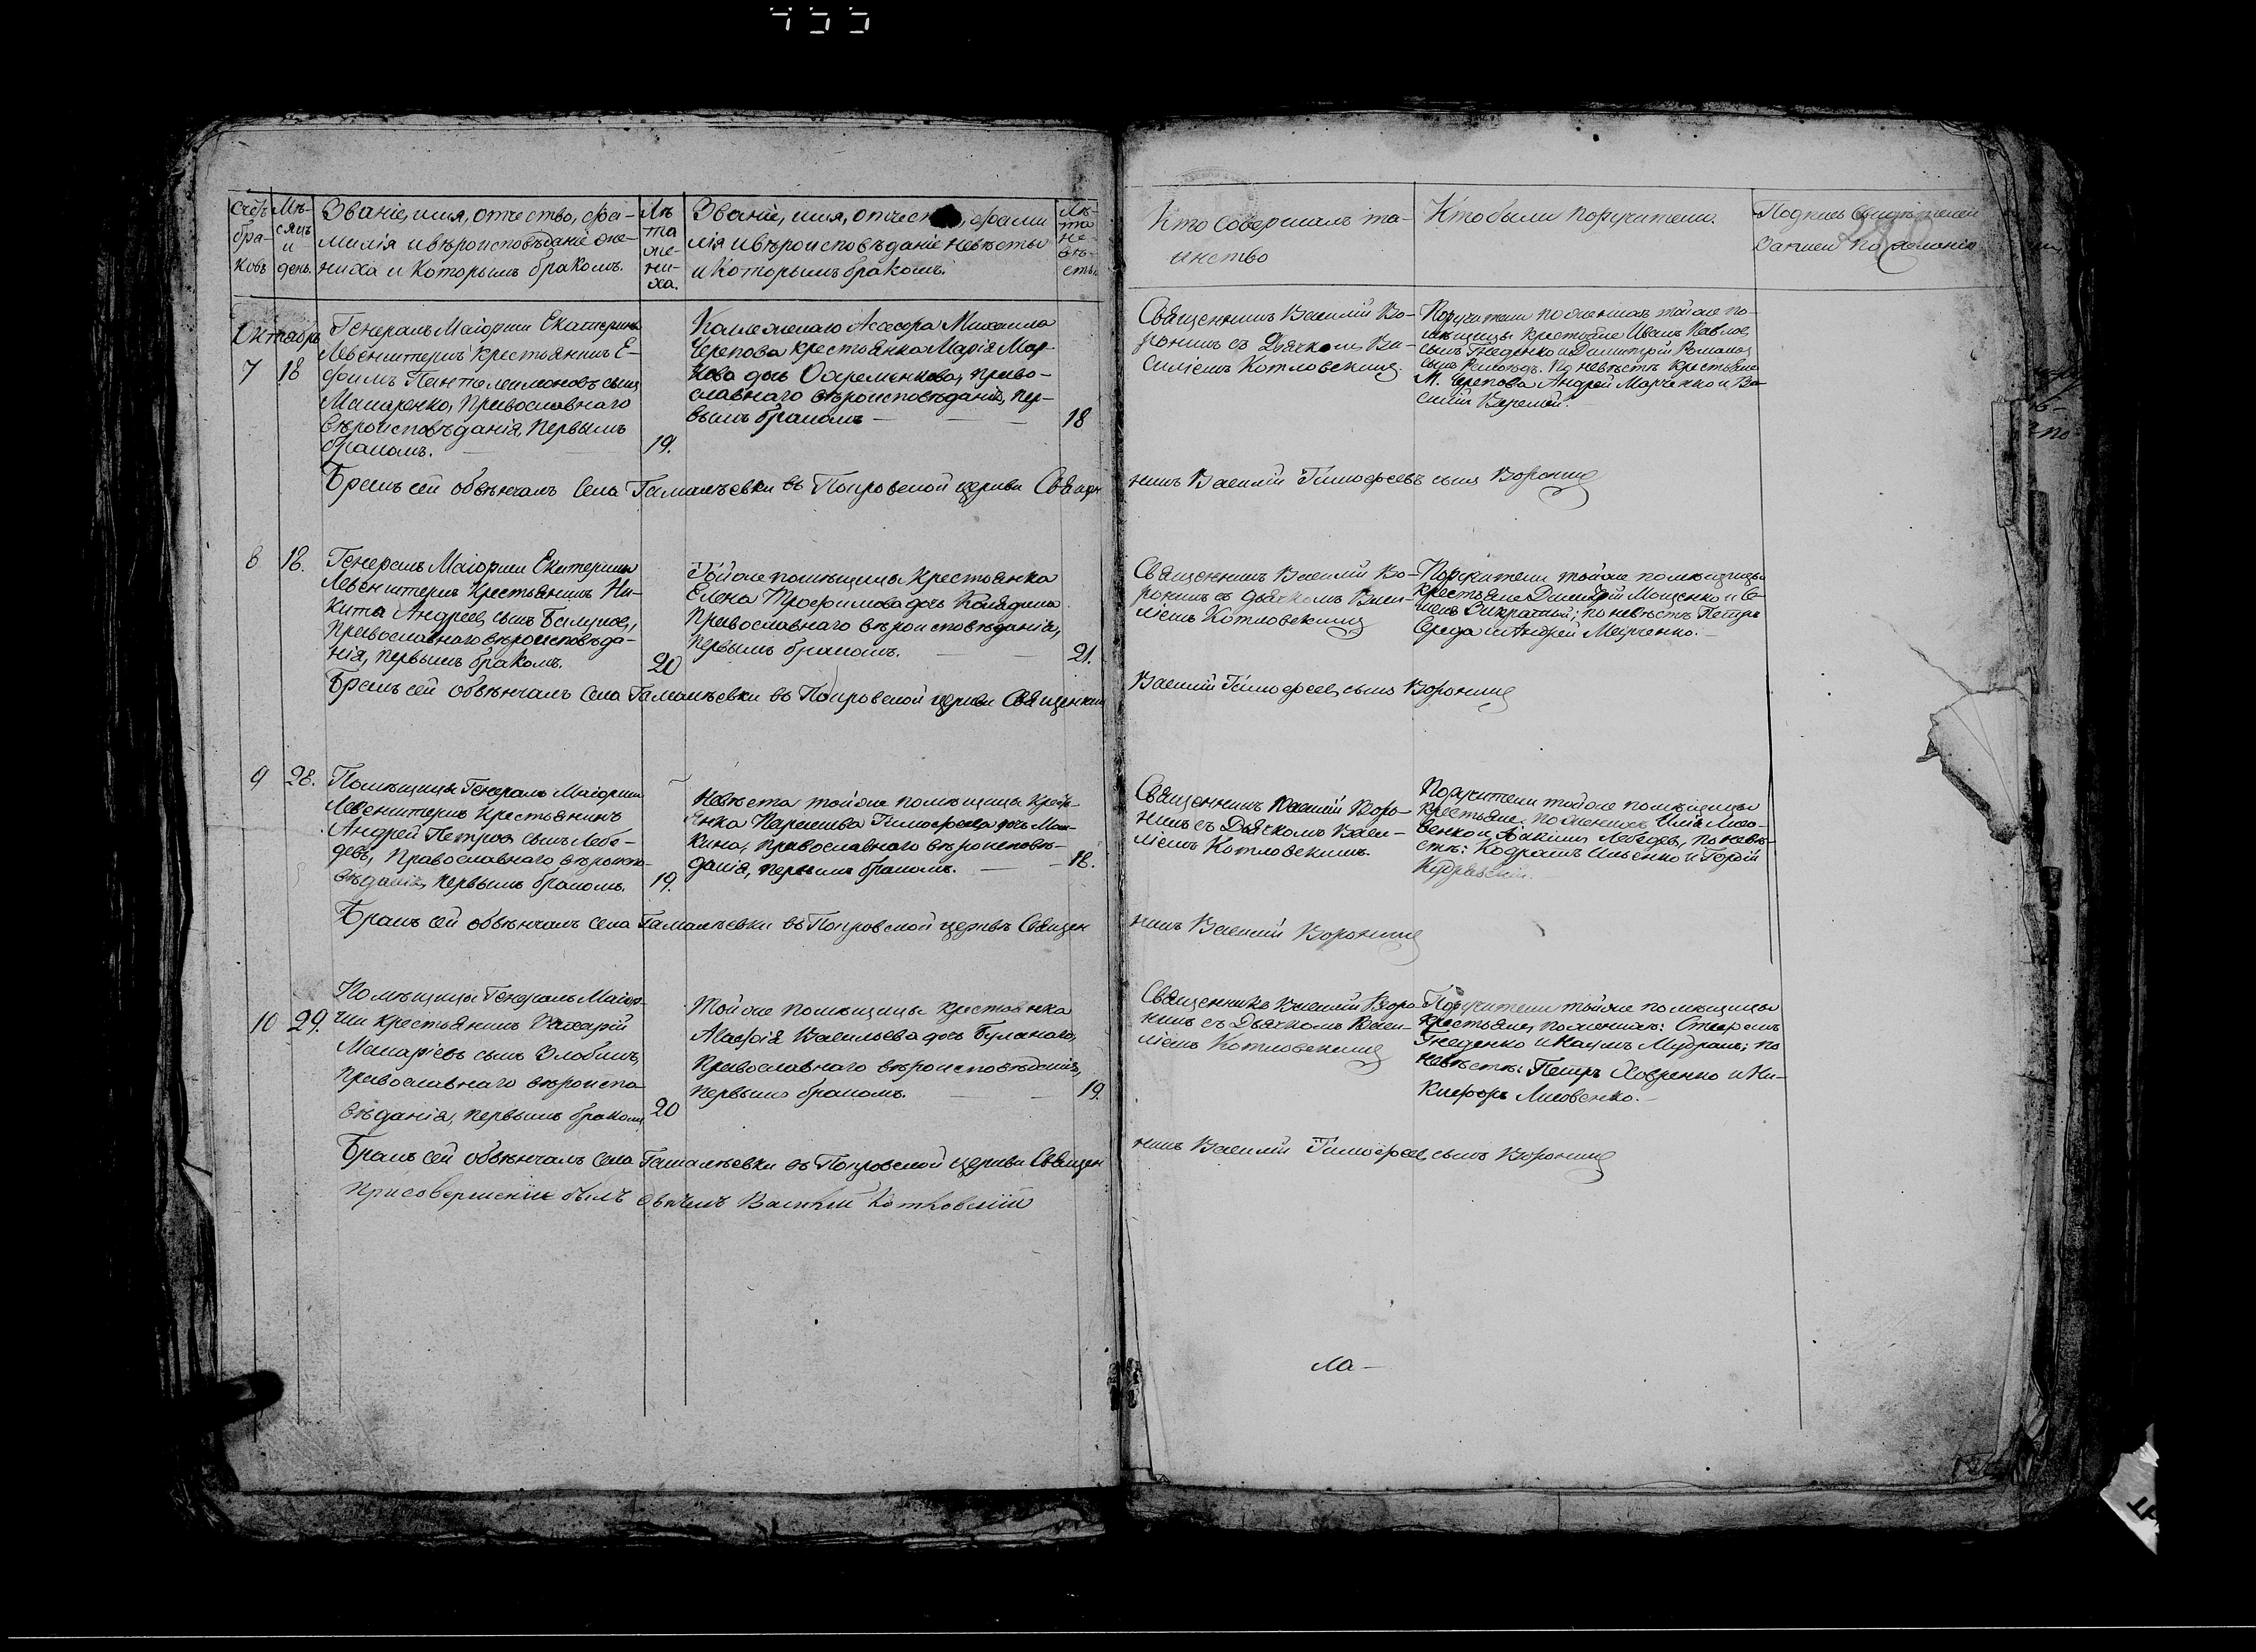 Счетъ браковъ
Мѣсяцъ и день.
Званіе, имя, отчество, фа-
милія и вѣроисповѣданіе же-
ниха и которымъ бракомъ.
Лѣта жениха.
Званіе, имя, отчест, фами
лія и вѣроисповѣданіе невѣсты
и которымъ бракомъ.
Лѣта невѣсты
Кто совершалъ та-
инство
Кто были поручители.
Подпись свидѣтелей
записи по желанію
Октябрь
7
18
Генералъ Маіорши Екатерины
Левенштернъ крестьянинъ Е-
фимъ Пантелеимоновъ сынъ
Макаренко, Православнаго
вѣроисповѣданія, первымъ
бракомъ.
19.
Коллежскаго Асессора Михаила
Черепова крестьянка Марія Мар-
кова дочь Охременкова, право-
славнаго вѣроисповѣданія, пер-
вымъ бракомъ
18
Священникъ Василій Во-
ронинъ съ Дьячкомъ Ва-
силіемъ Котловскимъ.
Поручители по женихѣ тойже по-
мѣщицы крестьяне Иванъ Павлов
сынъ Гнеденко и Димитрій Романов
сынъ. По невѣстѣ крестьяне
М. Черепова Андрей Марченко и Ва-
силій
Бракъ сей обвѣнчалъ села Гамалѣевки въ Покровской церкви Священ
никъ Василій Тимофеевъ сынъ Воронинъ
8
18.
Генералъ Маіорши Екатерины
Левенштернъ Крестьянинъ Ни-
кита Андреев сынъ
Православнаго вѣроисповѣда-
нія, первымъ бракомъ.
20
Тойже помѣщицы Крестьянка
Елена Трофимова дочь
Православнаго вѣроисповѣданія,
первымъ бракомъ.
21.
Священникъ Василій Во-
ронинъ съ дьячкомъ Васи-
ліемъ Котловскимъ
Поручители тойже помѣщицы
крестьяне Димитрій Мощенко и Се-
менъ; по невѣстѣ Петръ
Середа и Андрей Марченко.
Бракъ сей обвѣнчалъ села Гамалѣевки въ Покровской церкви Священник
Василій Тимофеев сынъ Воронинъ
9
28.
Помѣщицы Генералъ Маіорши
Левенштернъ Крестьянинъ
Андрей Петров сынъ Лебе-
девъ, Православнаго вѣроиспо-
вѣданія, первымъ бракомъ.
19.
Невѣста тойже помѣщицы Кресть-
янка Тимофеева дочь
Православнаго вѣроисповѣ-
данія, первымъ бракомъ.
18.
Священникъ Василій Воро-
нинъ съ Дьячкомъ Васи-
ліемъ Котловскимъ.
Поручители тойже помѣщицы
крестьяне, по женихѣ Илія Лисо-
венко и Іакимъ Лебедев, по невѣ-
стѣ: Кодратъ Ильенко и Гордій
Бракъ сей обвѣнчалъ села Гамалѣевки въ Покровской церквѣ Священ
никъ Василій Воронинъ
10
29.
Помѣщицы Генералъ Маіор-
ши крестьянинъ Захарій
Макаріевъ сынъ Злобинъ,
Православнаго вѣроиспо-
вѣданія, первымъ бракомъ
20
Тойже помѣщицы крестьянка
Агафія Васильева дочь
Православнаго вѣроисповѣданія,
первымъ бракомъ.
19.
Священникъ Василій Воро
нинъ съ Дьячкомъ Васи-
ліемъ Котловскимъ
Поручители тойже помѣщицы
крестьяне, по женихѣ:
Гнеденко и Наумъ; по
невѣстѣ: Петръ Ховренко и Ни-
кифоръ Лисовенко.
Бракъ сей обвѣнчалъ села Гамалѣевки въ Покровской церкви Священ
никъ Василій Тимофеев сынъ Воронинъ
При совершеніи былъ Дьячекъ Василій Котловскій
ла-